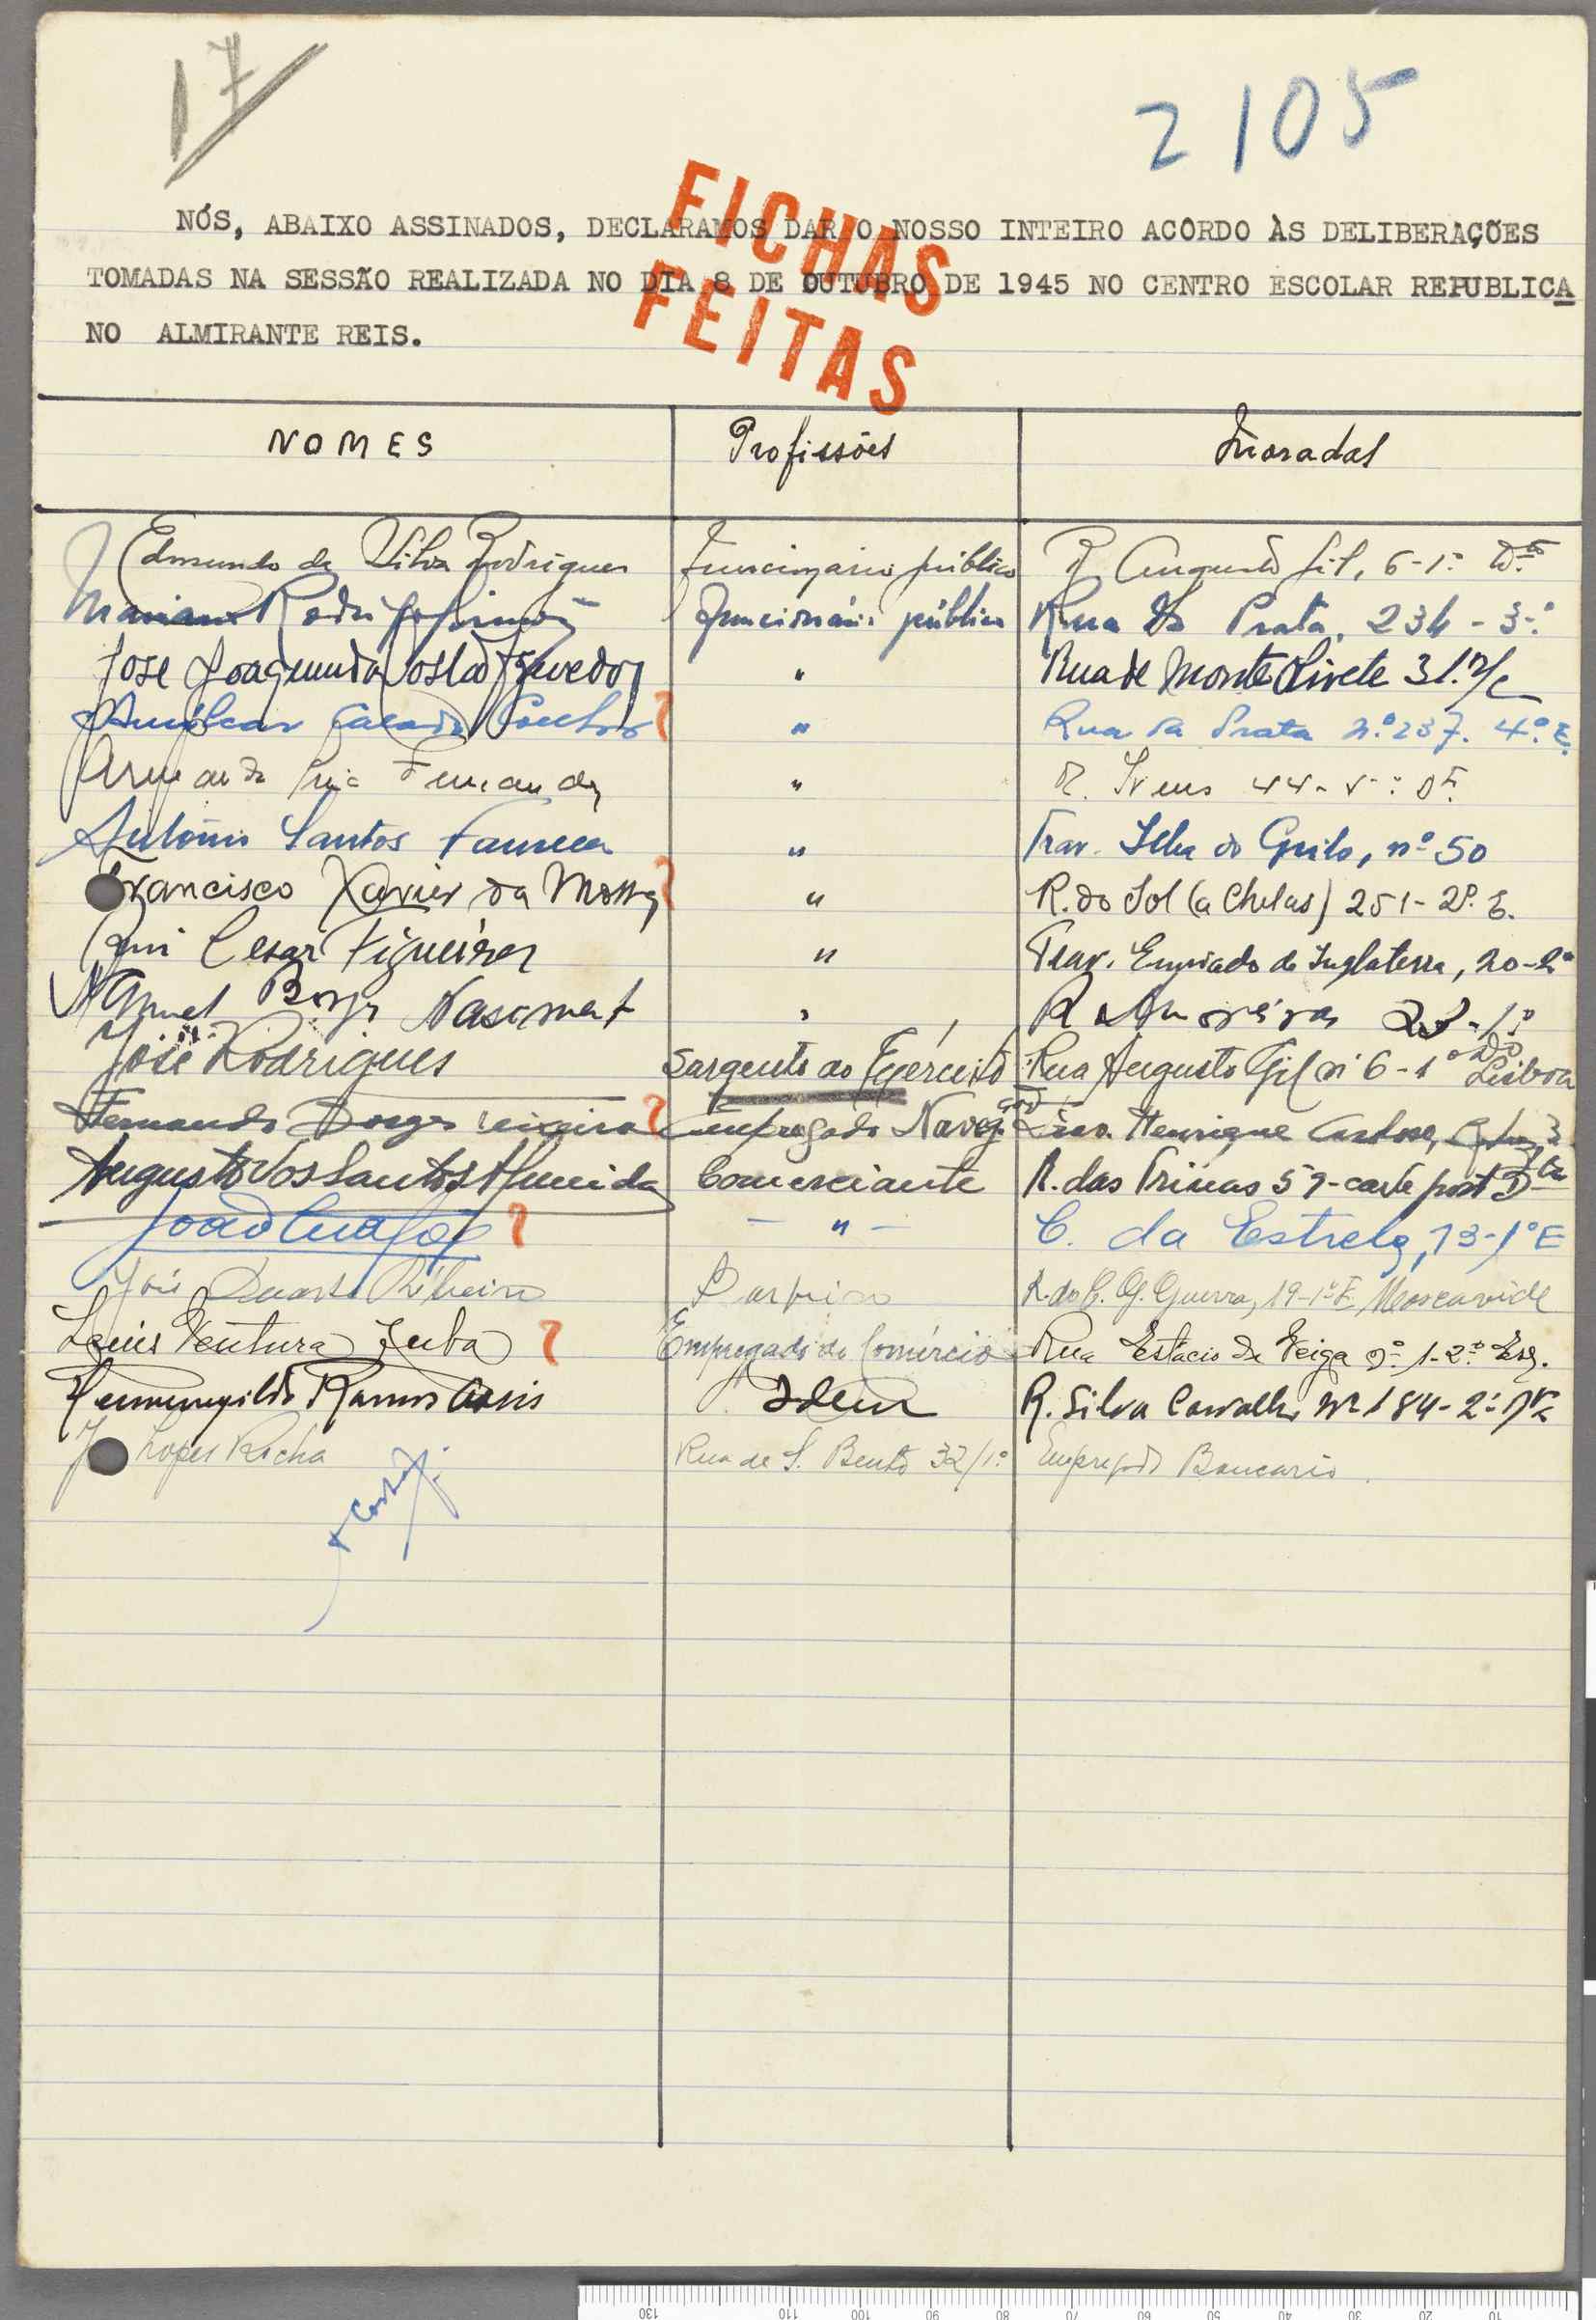 17
2105
FICHAS
FEITAS
NÓS, ABAIXO ASSINADOS, DECLARAMOS DAR O NOSSO INTEIRO ACÔRDO ÀS DELIBERAÇÕES
TOMADAS NA SESSÃO REALIZADA NO DIA 8 DE OUTUBRO DE 1945 NO CENTRO ESCOLAR REPUBLICA
NO ALMIRANTE REIS.
NOMES Profissões Moradas
Edmundo da Silva Rodrigues Funcionario público R Augusto Gil, 6-1º Dto
Mariano Funcionário público Rua da Prata, 234-3º
José Joaquim da Costa Azevedo " Rua de Monte Olivete 31 r/c
Amilcar " Rua da Prata nº 237. 4º E.
Armando Fernandes " R. Ivens 44-5º Dt.
António Santos Fonseca " Trav. Ilha do Grilo, nº 50
Francisco Xavier da Motta " R. do Sol (a Chelas) 251-2º. E.
Rui Cesar Figueira " Trav. Enviado de Inglaterra, 20-2º
Manuel Borges Nasciment " R Amoreiras 23-1º
José Rodrigues Sargento do Exército Rua Augusto Gil nº 6-1º Do Lisboa
Fernando Borges Teixeira Empregado Naveg. Trav. Henrique Cardoso, 3
Augusto dos Santos Almeida Comerciante R. das Trinas 59-cave port Dta
João - " - C. da Estrela, 13-1º E
José Duarte Ribeiro R. do C. G. Guerra, 19-1º E. Moscavide
Luis Ventura Juba Empregado do Comércio Rua Estacio da Veiga nº 1-2º Esq.
Hermenegildo Ramos Assis Idem R. Silva Carvalho Nº 184-2º
Lopes Rocha Rua de S. Bento 32/1º Empregado Bancario.